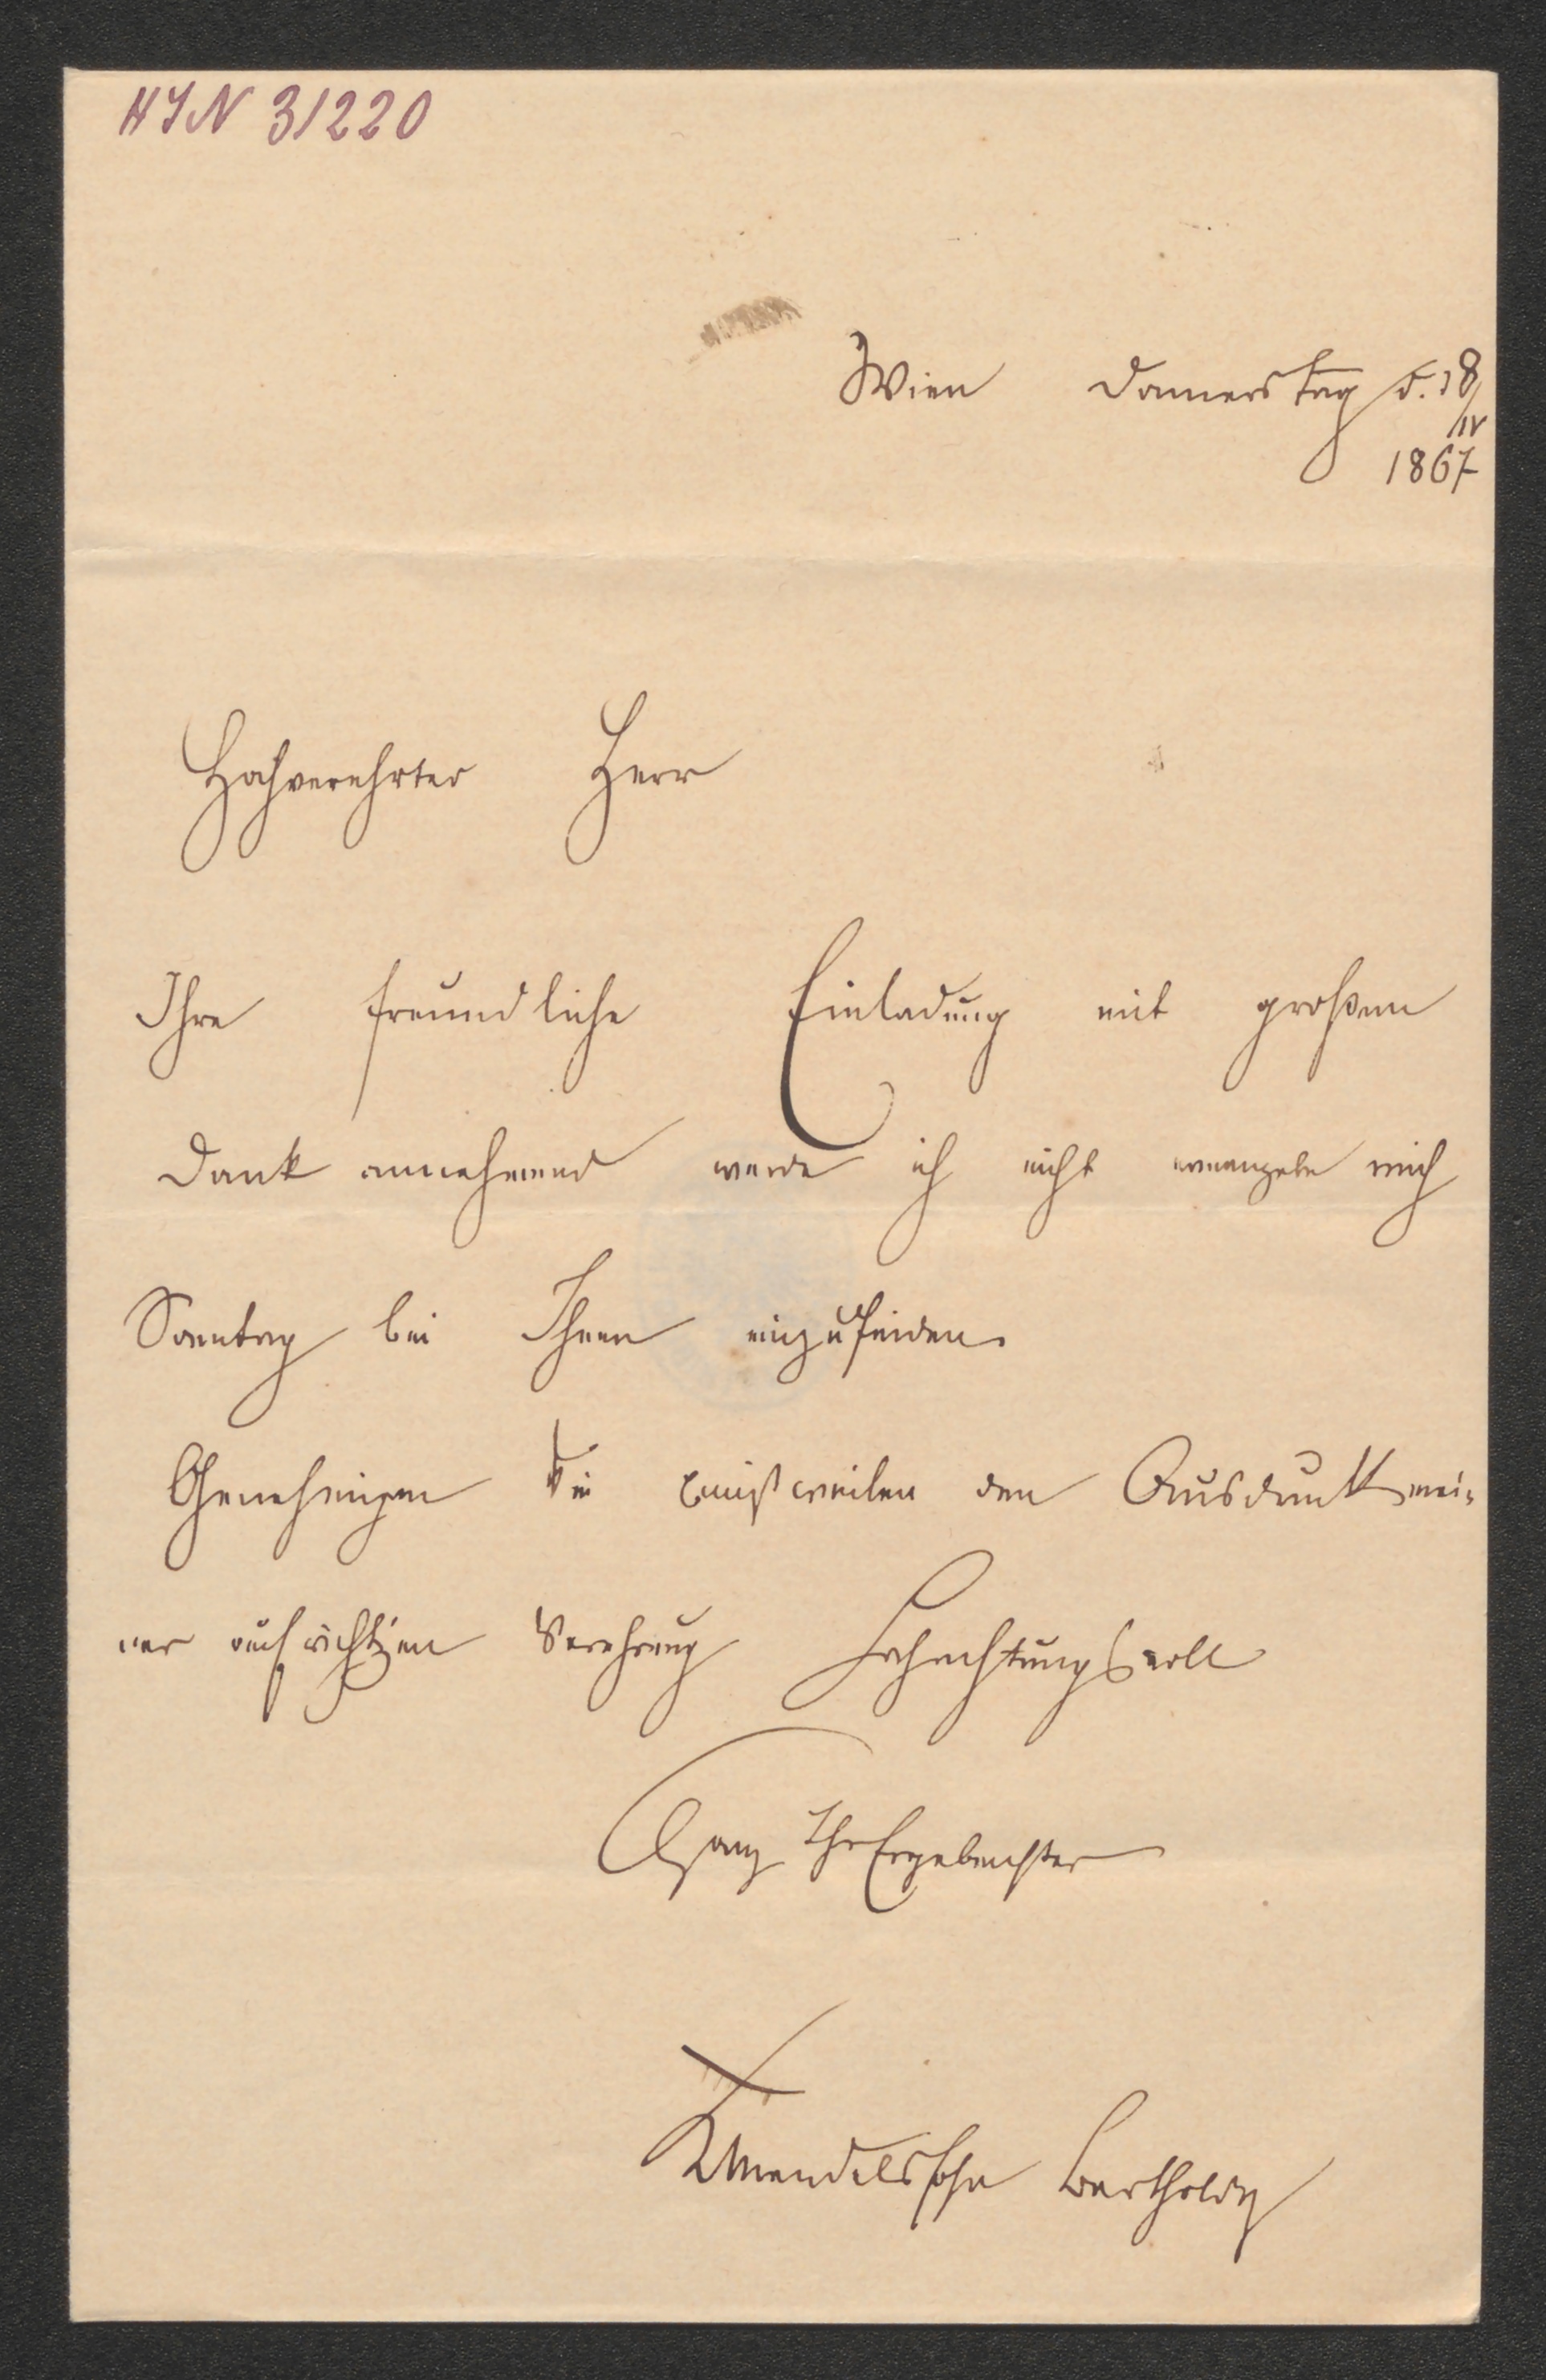 HIN 31220
Wien Donnerstag d. 18/IV
1867
Hochverehrter Herr
Ihre freundliche Einladung mit großem
Dank annehmend werde ich nicht ermangeln mich
Sonntag bei Ihnen einzufinden.
Genehmigen Sie den Ausdruck mei-
ner aufrichtigen Verehrung Hochachtungsvoll
Ganz Ihr Ergebenster
Mendelssohn Bartholdy